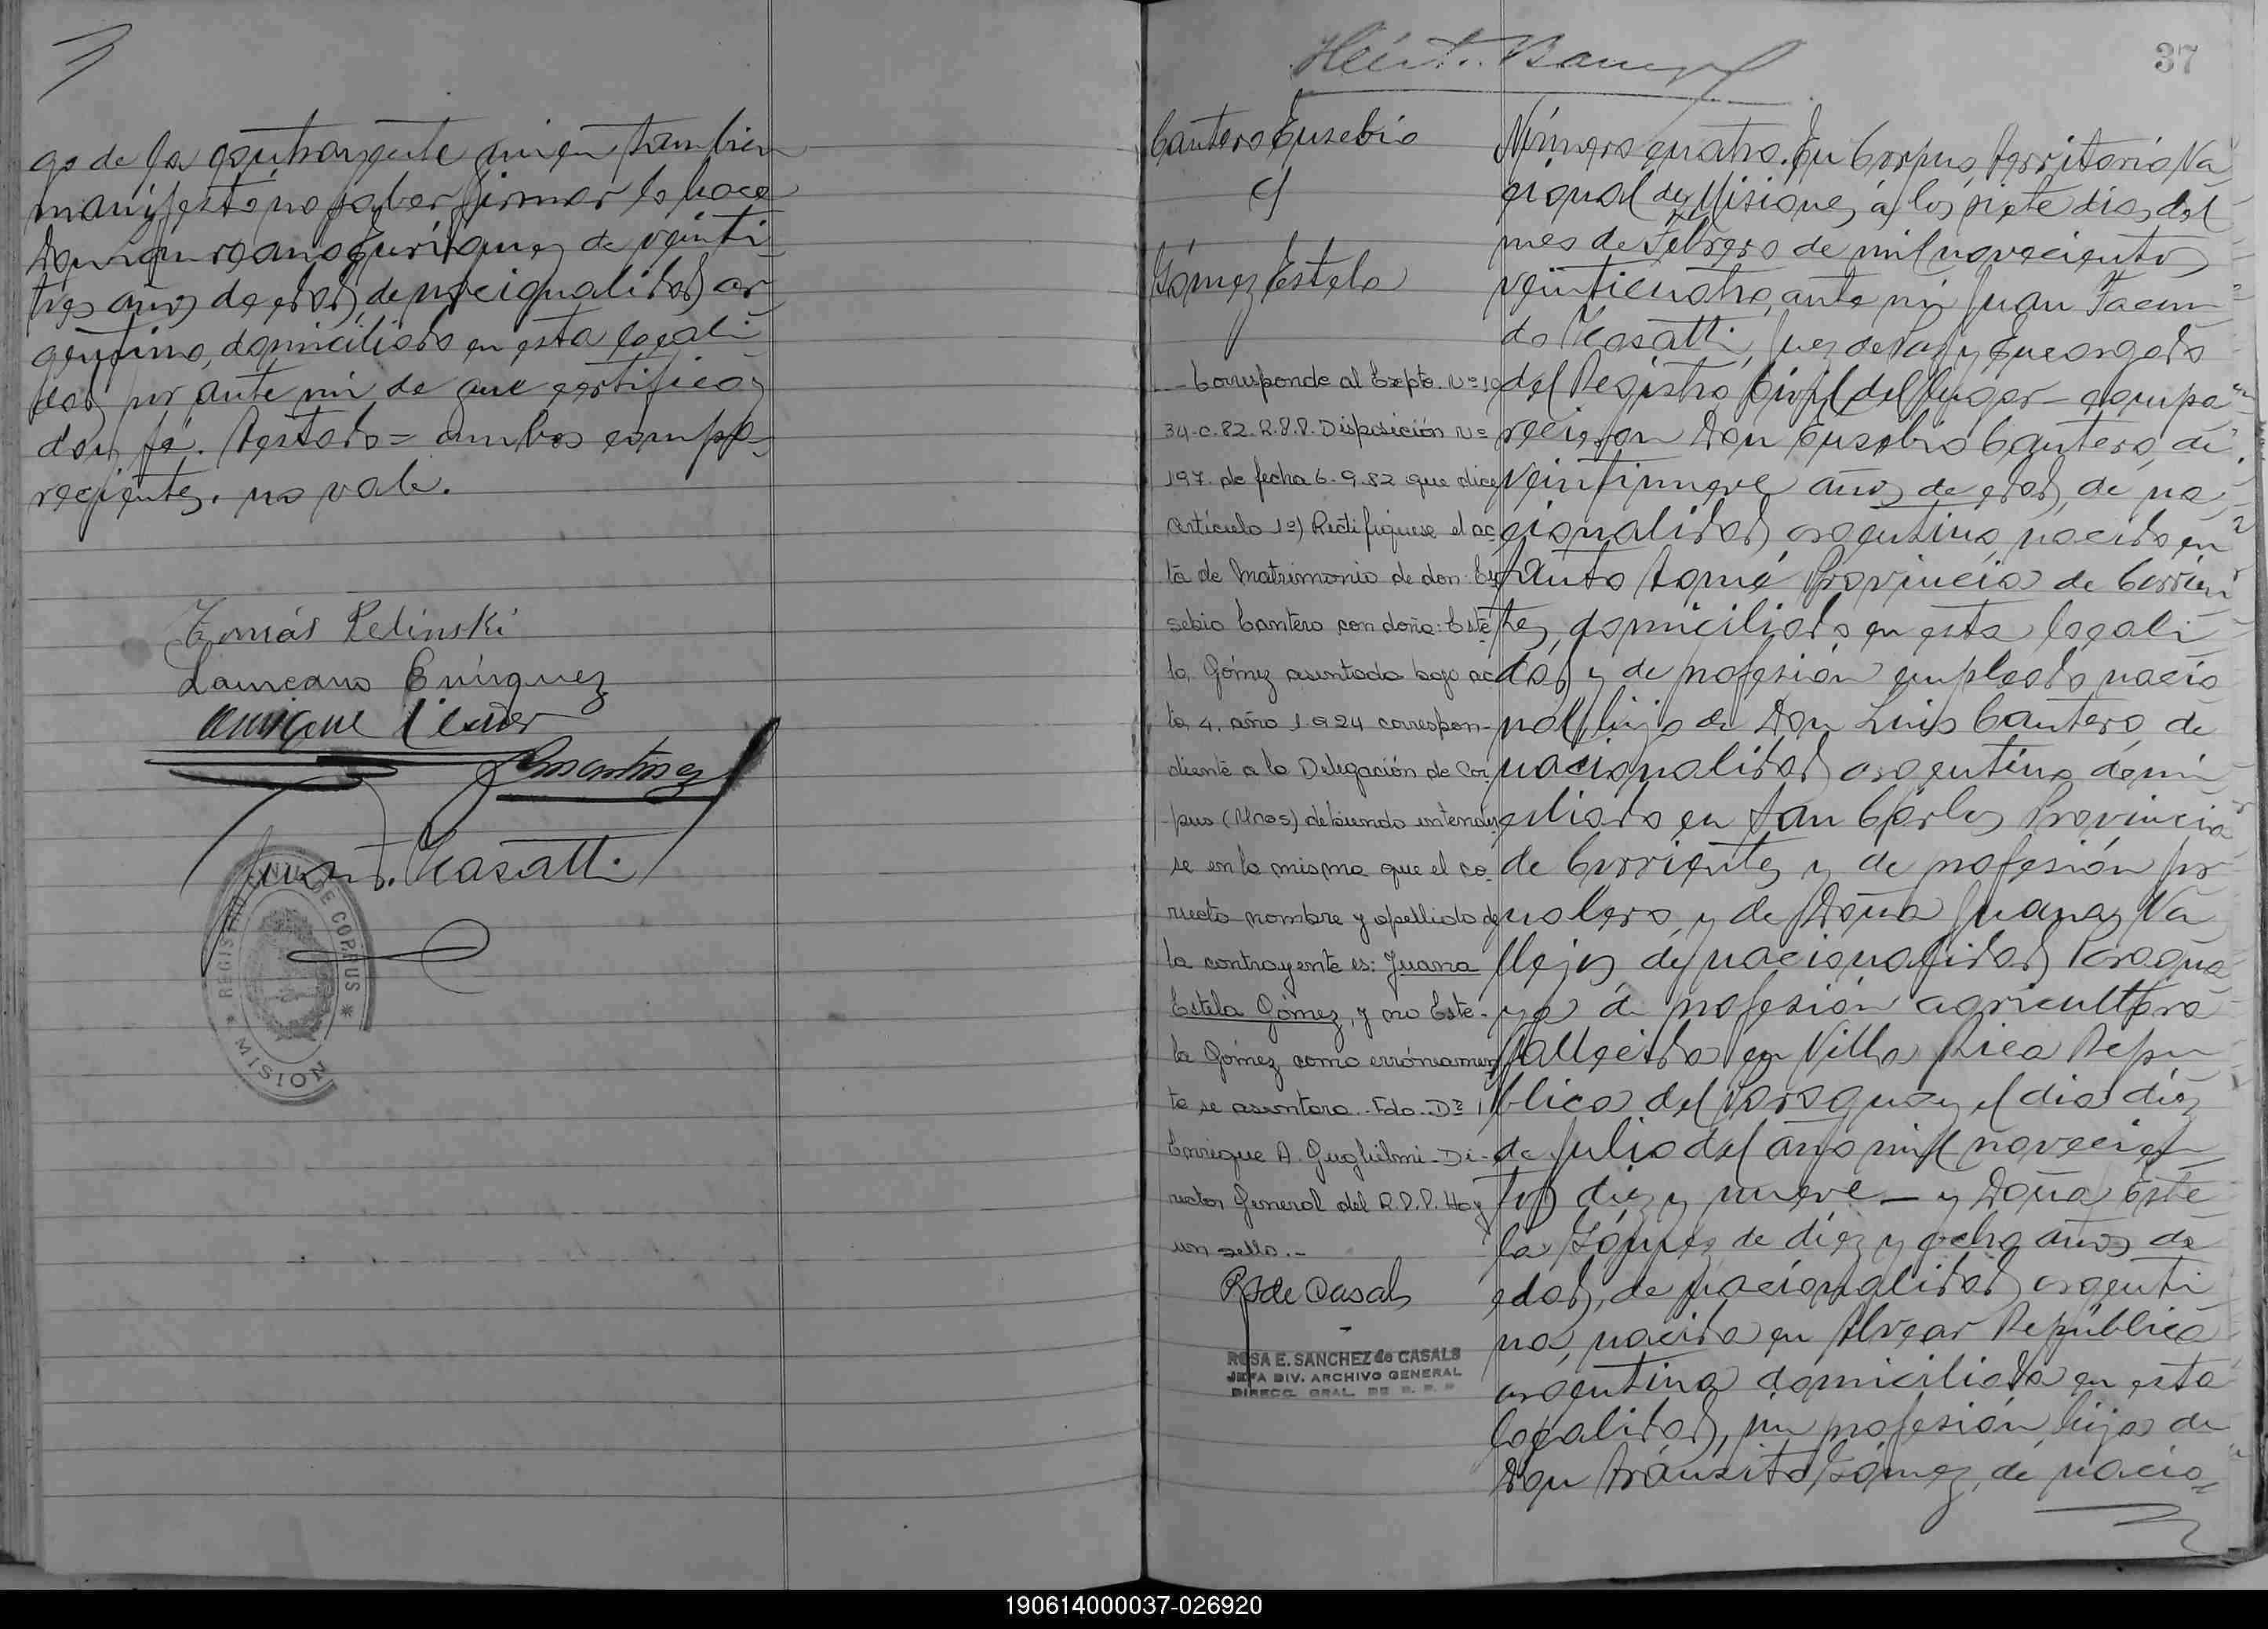 go de la contrayente quien tambien
manifesto no saber firmar lo hace
Don Laureano Enriquez de veinti
tres años de edad, de nacionalidad ar
gentino, domiciliado en esta locali
dad por ante mi de que certifico y
doy fé. Testado = ambos compa
recientes. no vale.
Tomás Pelinski
Laureano Enríquez
Juan F. Casatti
REGISTRO CIVIL DE CORPUS
MISION
37
Cantero Eusebio
c/
Gómez Estela
Corresponde al Expte. Nº 19
34-C.82. R.P.P. Disposición Nº
197. de fecha 6.9.82 que dice
Artículo 1º) Rectifiquese el ac
ta de Matrimonio de don Eu
sebio Cantero con doña: Este
la, Gómez asentada bajo ac
ta 4. año 1.924 correspon-
diente a la Delegación de Cor
pus (Mnes) debiendo entender
se en la misma que el co-
rrecto nombre y apellido de
la contrayente es: Juana
Estela Gómez, y no Este-
la Gómez como erróneamen
te se asentara. Fdo. Dº
Enrique A. Guglielmi-Di-
rector General del R.P.P. Hay
un sello.-
R S de Casals
ROSA E. SANCHEZ de CASALS
JEFA DIV. ARCHIVO GENERAL
DIRECC. GRAL. DE R. P. P
Número cuatro. En Corpus, Territorio Na
cional de Misiones, á los siete dias del
mes de Febrero de mil novecientos
veinticuatro, ante mi Juan Facun
do Casatti, Juez de Paz y Encargado
del Registro Civil del lugar - compa
recieron Don Eusebio Cantero, de
veintinueve años de edad, de na
cionalidad argentino, nacido en
Santo Tomé Provincia de Corrien
tes, domiciliado en esta locali
dad y de profesión empleado nacio
nal, hijo de Don Luis Cantero, de
nacionalidad argentino domi
ciliado en San Cárlos Provincia
de Corrientes y de profesión jor
nalero, y de Doña Juana Va
llejos de nacionalidad Paragua
ya de profesión agricultora
fallecida en Villa Rica Repu
blica del Paraguay el dia diez
de Julio del año mil novecien
tos diez y nueve - y Doña Este
la Gómez de diez y ocho años de
edad, de nacionalidad argenti
na, nacida en Alvear República
argentina domiciliada en esta
localidad, sin profesión, hija de
Don Tránsito Gómez, de nacio